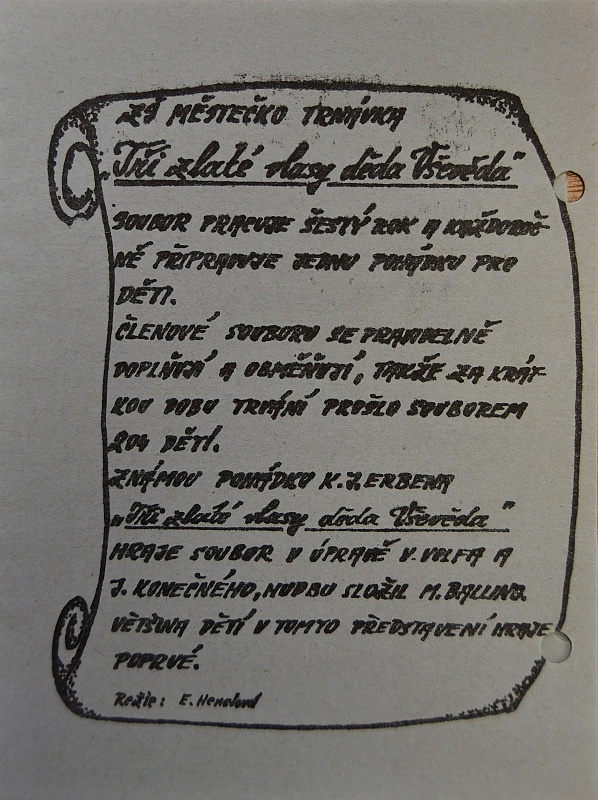 ZŠ MĚSTEČKO TRNÁVKA
„Tři zlaté vlasy děda Vševěda"
SOUBOR PRACUJE ŠESTÝ ROK A KAŽDOROČ-
NĚ PŘIPRAVUJE JEDNU POHÁDKU PRO
DĚTI.
ČLENOVÉ SOUBORU SE PRAVIDELNĚ
DOPLŇUJÍ A OBMĚŇUJÍ, TAKŽE ZA KRÁT-
KOU DOBU TRVÁNÍ PROŠLO SOUBOREM
204 DĚTÍ.
ZNÁMOU POHÁDKU K.J. ERBENA
„Tři zlaté vlasy děda Vševěda"
HRAJE SOUBOR V ÚPRAVĚ V. VOLFA A
J. KONEČNÉHO, HUDBU SLOŽIL M.
VĚTŠINA DĚTÍ V TOMTO PŘEDSTAVENÍ HRAJE
POPRVÉ.
Režie: E.